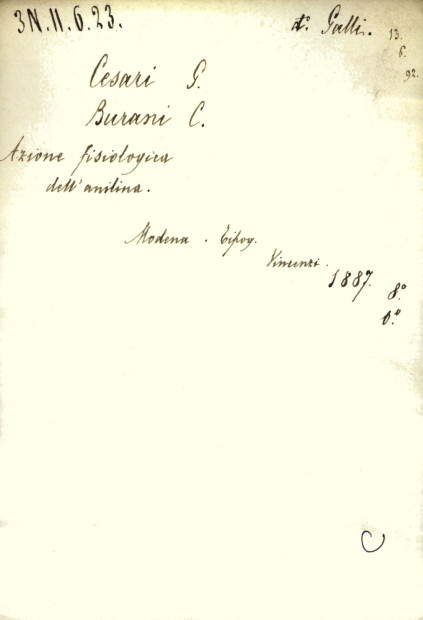 3N.II.6.23.
d.º Galli.
13.
6.
92.
Cesari G.
Burani C.
Azione fisiologica
dell'anilina.
Modena . Tipog.
Vincenzi.
1887.
8º.
0.º
C